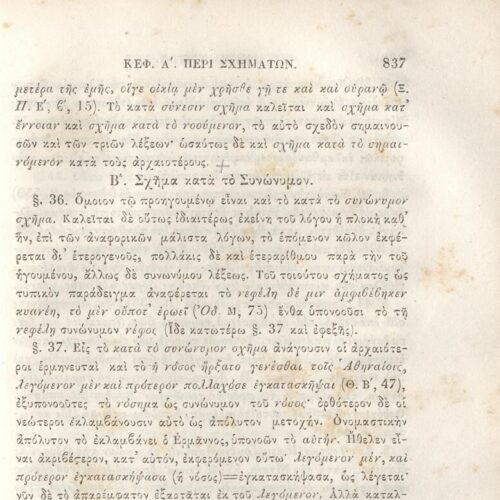 ΚΕΦ. Α΄. ΠΕΡΙ ΣΧΗΜΑΤΩΝ. 837
μετέρα τῆς ἐμῆς, οἵγε οἰκίᾳ μὲν χρῆσθε γῇ τε καὶ καὶ οὐρανῷ (Ξ.
Π. Ε΄, β΄, 15). Τὸ κατὰ σύνεσιν σχῆμα καλεῖται καὶ σχῆμα κατ᾽
ἔννοιαν καὶ σχῆμα κατὰ τὸ νοούμενον, τὸ αὐτὸ σχεδὸν σημαινου-
σῶν καὶ τῶν τριῶν λέξεων· ὡσαύτως δὲ καὶ σχῆμα κατὰ τὸ σημαι-
νόμενον κατὰ τοὺς ἀρχαιοτέρους.
Β΄. Σχῆμα κατὰ τὸ Συνώνυμον.
§. 36. Ὅμοιον τῷ προηγουμένῳ εἶναι καὶ τὸ κατὰ τὸ συνώνυμον
σχῆμα. Καλεῖται δὲ οὕτως ἰδιαιτέρως ἐκείνη τοῦ λόγου ἡ πλοκὴ καθ᾽
ἥν, ἐπὶ τῶν ἀναφορικῶν μάλιστα λόγων, τὸ ἑπόμενον κῶλον ἐκφέ-
ρεται δι᾽ ἑτερογενοῦς, πολλάκις δὲ καὶ ἑτεραρίθμου παρὰ τὴν τοῦ
ἡγουμένου, ἄλλως δὲ συνωνύμου λέξεως. Τοῦ τοιούτου σχήματος ὡς
τυπικὸν παράδειγμα ἀναφέρεται τὸ νεφέλη δέ μιν ἀμφιβέβηκεν
κυανέη, τὸ μὲν οὔποτ᾽ ἐρωεῖ (Ὀδ. Μ, 75) ἔνθα ὑπονοεῖται τὸ τῇ
νεφέλῃ συνώνυμον νέφος (Ἴδε κατωτέρω §. 37 καὶ ἐφεξῆς).
§. 37. Εἰς τὸ κατὰ τὸ συνώνυμον σχῆμα ἀνάγουσιν οἱ ἀρχαιότε-
ροι ἑρμηνευταὶ καὶ τὸ ἡ νόσος ἤρξατο γενέσθαι τοῖς Ἀθηναίοις,
λεγόμενον μὲν καὶ πρότερον πολλαχόσε ἐγκατασκῆψαι (Θ. Β΄, 47),
ἐξυπονοοῦντες τὸ νόσημα ὡς συνώνυμον τοῦ νόσος· ὀρθότερον δὲ οἱ
νεώτεροι ἐκλαμβάνουσιν αὐτὸ ὡς ἀπόλυτον μετοχήν. Ὀνομαστικὴν
ἀπόλυτον τὸ ἐκλαμβάνει ὁ Ἕρμαννος, ὑπονοῶν τὸ αὐτήν. Ἤθελεν εἶ-
ναι ἀκριβέστερον, κατ᾽ αὐτόν, ἐκφερόμενον οὕτω· Λεγόμενον μέν, καὶ
πρότερον ἐγκατασκήψασα (ἡ νόσος)=ἐγκατασκήψασα, ὡς λέγεται·
νῦν δὲ τὸ ἀπαρέμφατον ἐξαρτᾶται ἐκ τοῦ λεγόμενον. Ἀλλὰ καταλ-